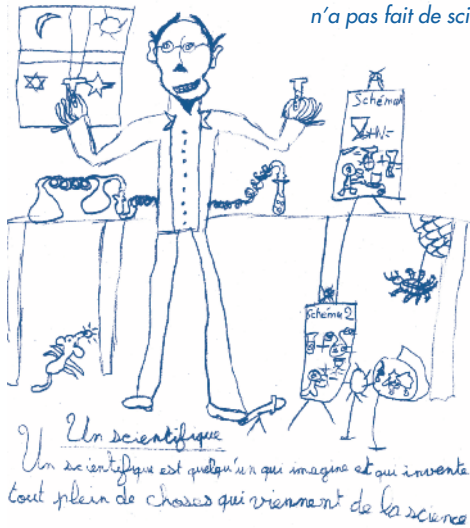 n'a pas fait de sci
Schéma1
Schéma 2
Un scientifique
Un scientifique est quelqu'un qui imagine et qui invente
tout plein de choses qui viennent de la science